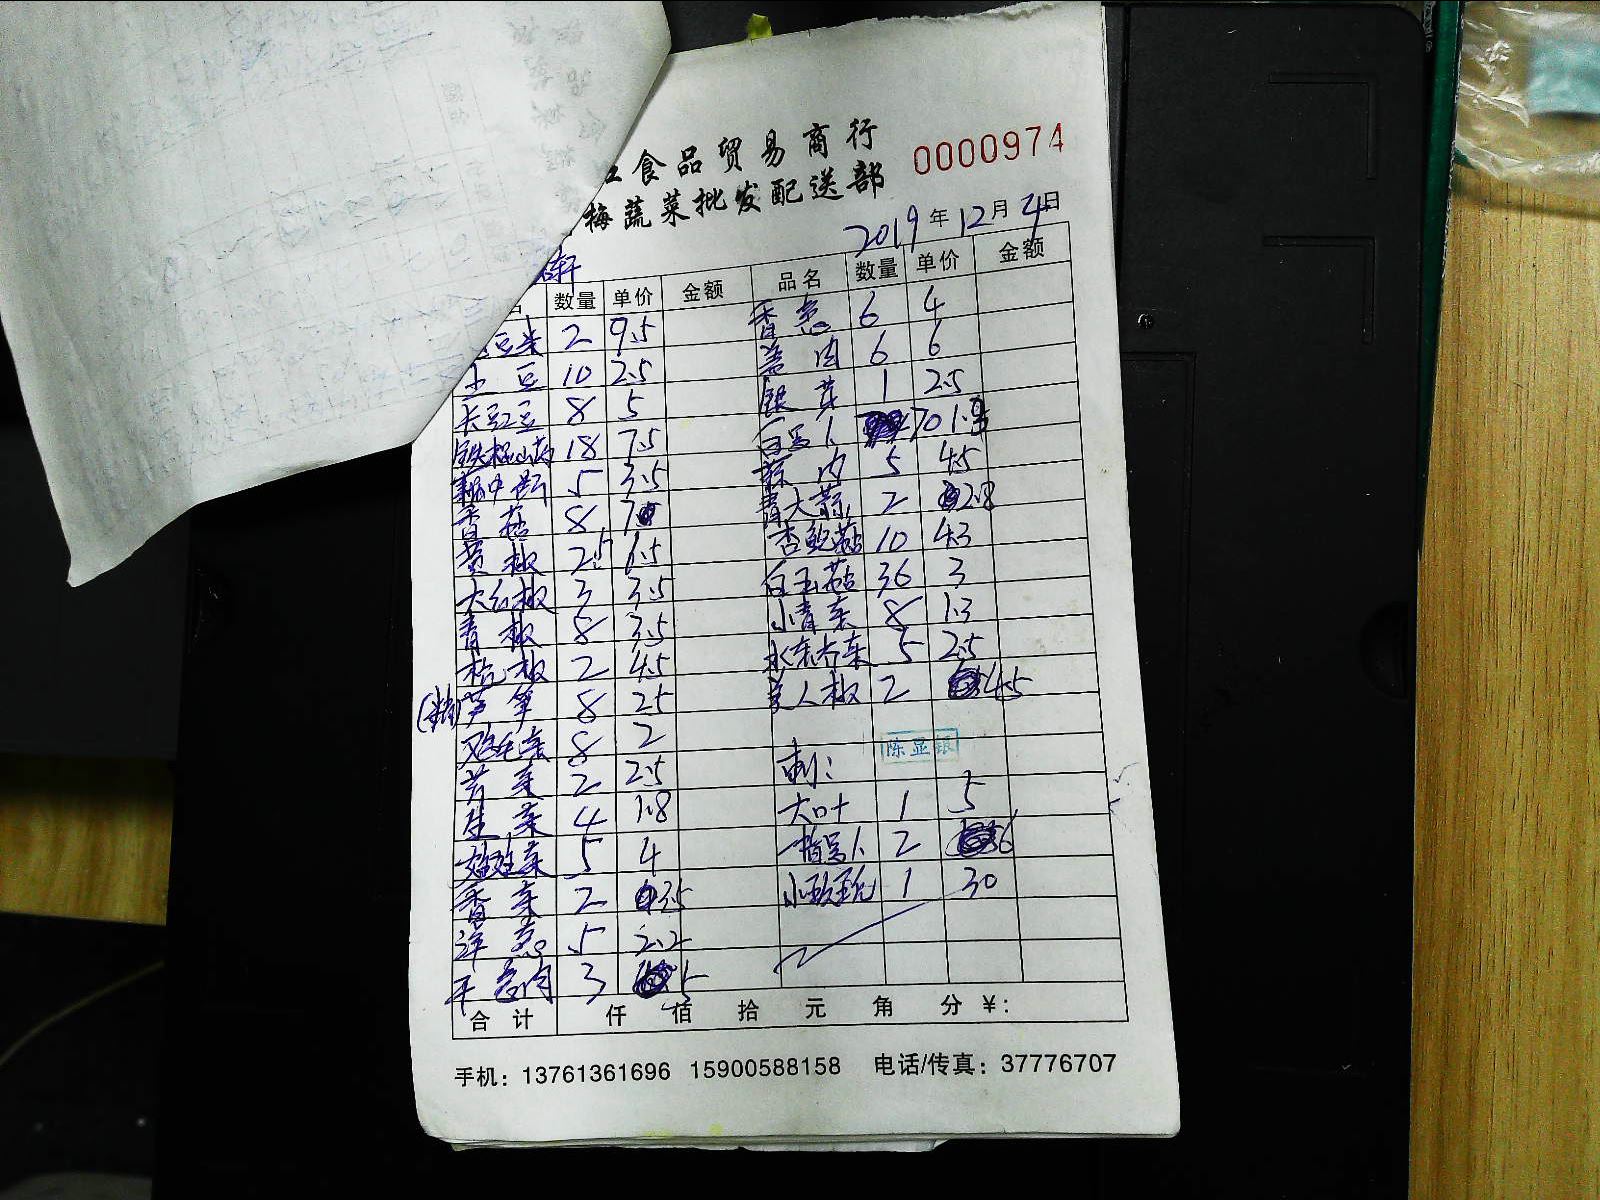 食品贸易商行
0000974
梅蔬菜批发配送部
2019年12月4日
轩
数量 单价 金额 品名 数量 单价 金额
豆米 2 9.5 香葱 6 4
土豆 10 2.5 姜肉 6 6
长豇豆 8 5 银芽 1 2.5
铁棍山药 18 7.5 70 1.9
5 3.5 蒜肉 5 4.5
香菇 8 7 青大蒜 2 2.8
黄椒 2.5 6.5 杏鲍菇 10 4.3
大红椒 3 3.5 白玉菇 36 3
青椒 8 3.5 小青菜 8 1.3
杭椒 2 4.5 水东芥菜 5 2.5
芦笋 8 25 美人椒 2 4.5
鸡毛菜 8 2 陈显银
芹菜 2 2.5 刺:
生菜 4 1.8 大叶 1 5
娃娃菜 5 4 2 6
香菜 2 3.5 1 30
洋葱 5 2.2
干葱肉 3 5
合计 仟 佰 拾 元 角 分 ¥:
手机: 13761361696 15900588158 电话/传真: 37776707